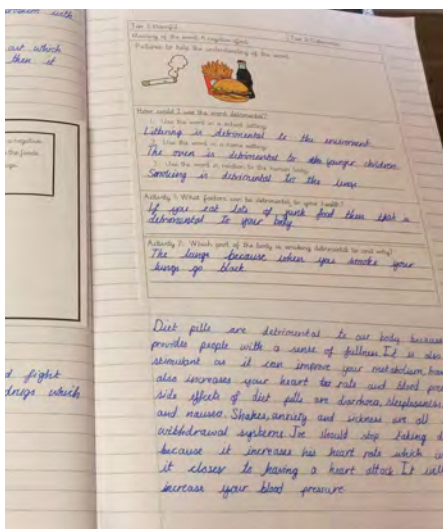 out which
then it
Meaning of the word: A negative effect
Pictures to help the understanding of the word:
How could I use the word detrimental?
1. Use the word in a school setting:
Littering is detrimental to the enviroment
2. Use the word in a home setting:
The oven is detrimental to younger children
3. Use the word in relation to the human body:
Smoking is detrimental to the lungs
Activity 1: What factors can be detrimental to your health?
If you eat lots of junk food then that is
detrimental to your body
Activity 2: Which part of the body is smoking detrimental to and why?
The lungs because when you smoke your
lungs go black
Diet pills are detrimental to our body because
provides people with a sense of fullness. It is also
stimulant as it can improve your metabolism, how
also increases your heart rate and blood pre
side effects of diet pills are diarrhoea, sleeplessness
and nausea. Shakes, anxiety and sickness are all
withdrawal systems. Joe should stop taking d
because it increases his heart rate which is
it closer to having a heart attack. It will
increase your blood pressure
d fight
drugs which